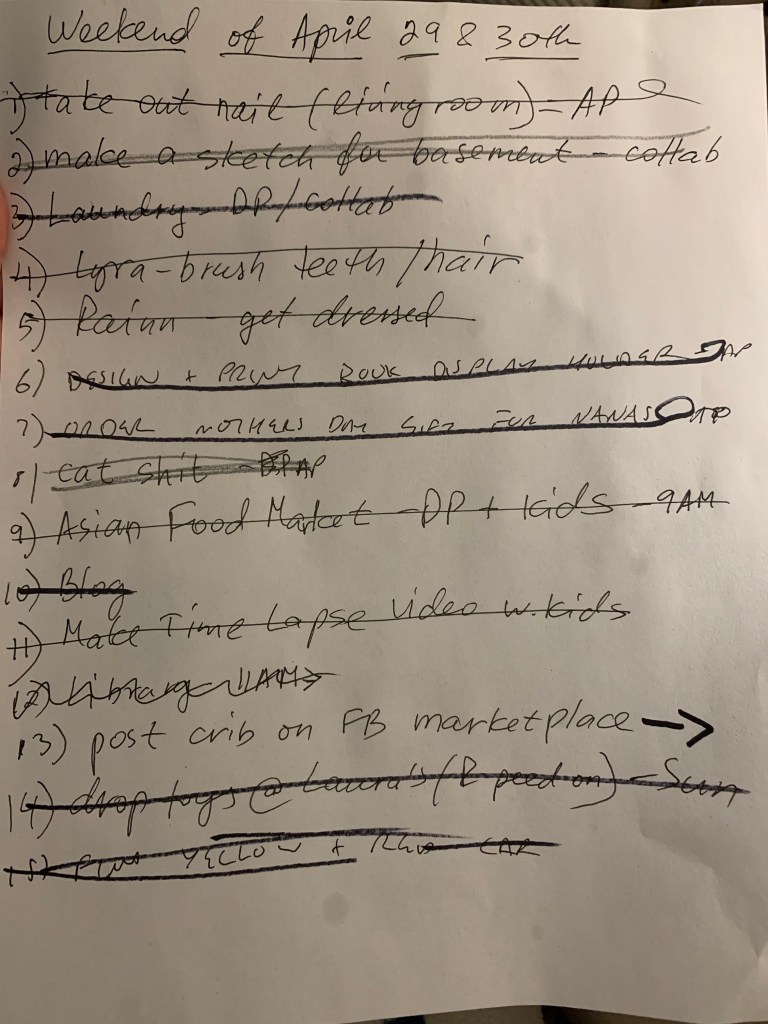 Weekend of April 29 & 30th
1) take out nail (living room) - AP
2) make a sketch for basement - collab
3) Laundry - DP/Collab
4) Lyra - brush teeth / hair
5) Rainn - get dressed
6) DESIGN + PRINT BOOK DISPLAY HOLDER - AP
7) ORDER MOTHERS DAY GIFT FOR NANAS
8) cat shit - AP
9) Asian Food Market - DP + kids - 9AM
10) Blog
11) Make Time Lapse Video w. kids
12) Library 11AM
13) post crib on FB marketplace →
14) drop toys @ Laura's (R peed on) - Sun
15) YELLOW + CAR